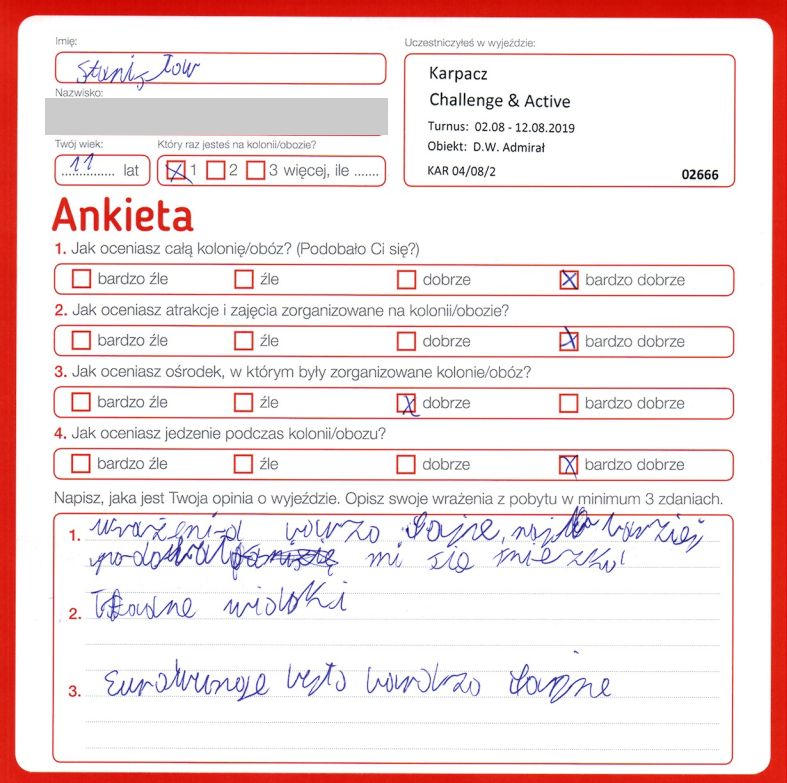 Imię:
Stanisław
Nazwisko:
Twój wiek:
11 lat
Który raz jesteś na kolonii/obozie?
1 2 3 więcej, ile .......
Uczestniczyłeś w wyjeździe:
Karpacz
Challenge & Active
Turnus: 02.08 - 12.08.2019
Obiekt: D.W. Admirał
KAR 04/08/2 02666
Ankieta
1. Jak oceniasz całą kolonię/obóz? (Podobało Ci się?)
bardzo źle źle dobrze bardzo dobrze
2. Jak oceniasz atrakcje i zajęcia zorganizowane na kolonii/obozie?
bardzo źle źle dobrze bardzo dobrze
3. Jak oceniasz ośrodek, w którym były zorganizowane kolonie/obóz?
bardzo źle źle dobrze bardzo dobrze
4. Jak oceniasz jedzenie podczas kolonii/obozu?
bardzo źle źle dobrze bardzo dobrze
Napisz, jaka jest Twoja opinia o wyjeździe. Opisz swoje wrażenia z pobytu w minimum 3 zdaniach.
1. wrażenia fajne, bardziej
mi się
2. Ładne widoki
3. było bardzo fajne